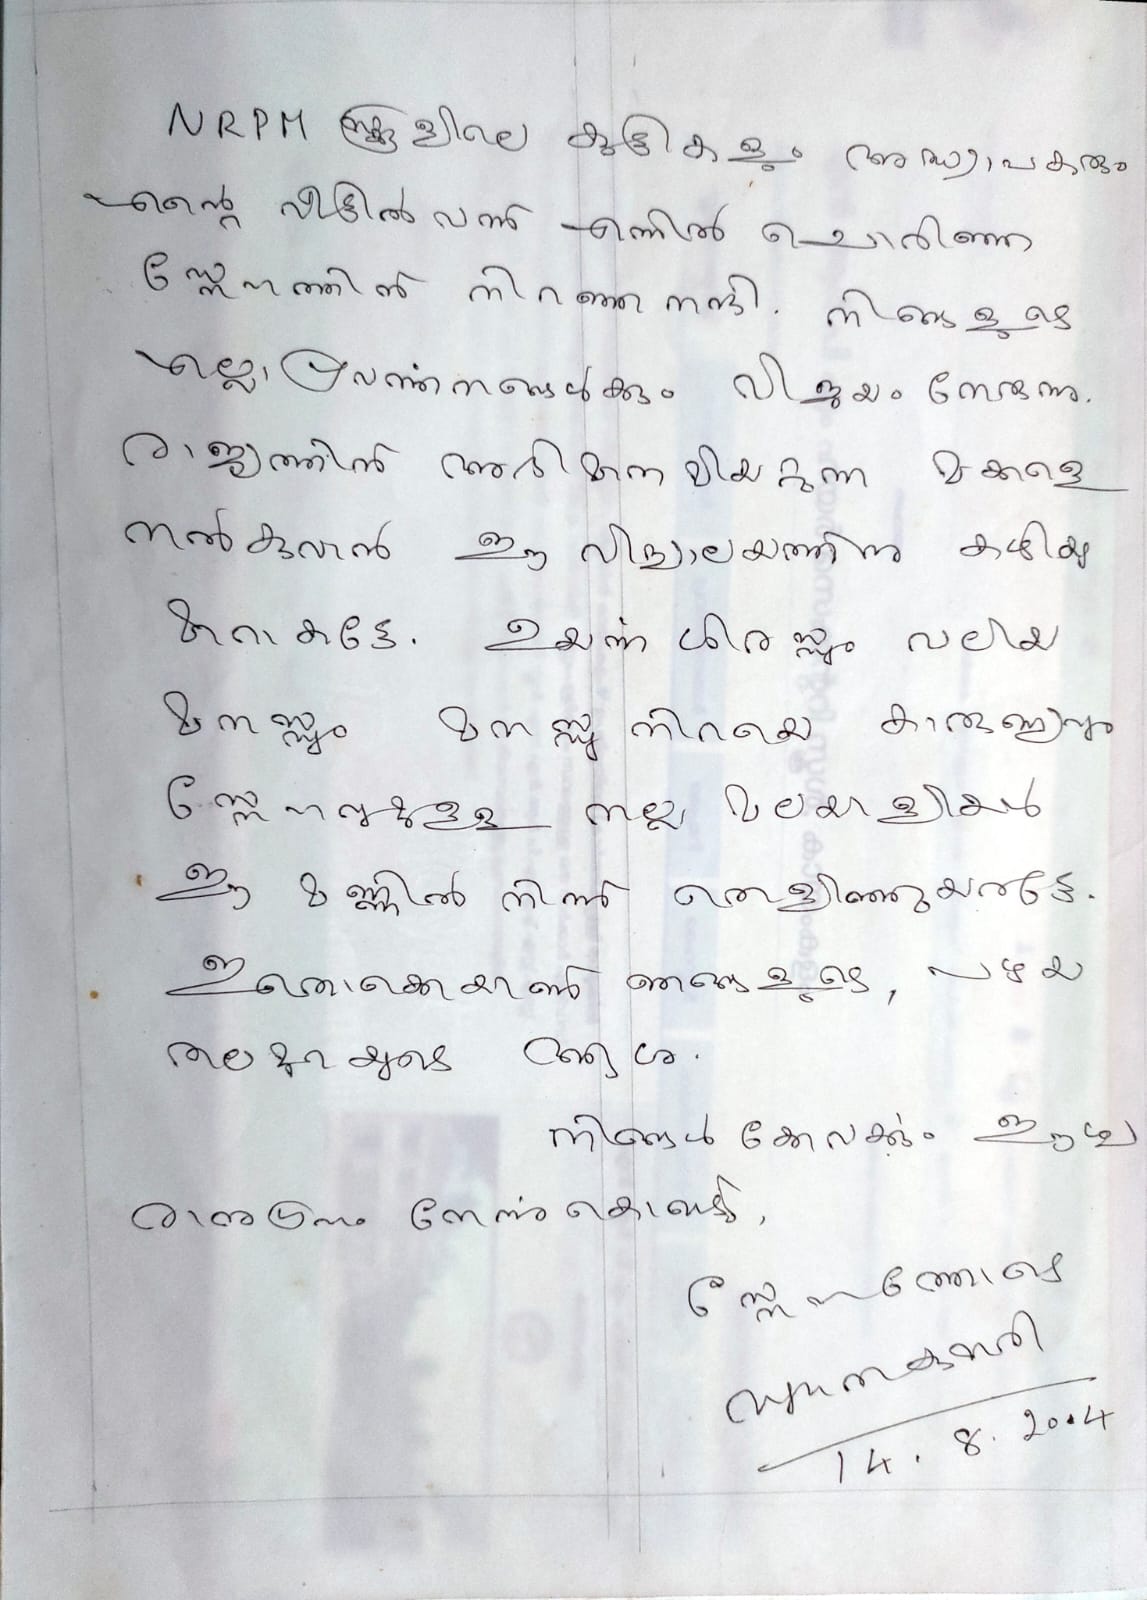 NRPM സ്കൂളിലെ കുട്ടികളും അദ്ധ്യാപകരും
എന്റെ വീട്ടിൽ വന്ന് എന്നിൽ ചൊരിഞ്ഞ
സ്നേഹത്തിൻ നിറഞ്ഞ നന്ദി. നിങ്ങളുടെ
എല്ലാ പ്രവർത്തനങ്ങൾക്കും വിജയം നേരുന്നു.
രാജ്യത്തിൻ അഭിമാനമിയറ്റുന്ന മക്കളെ
നൽകുവാൻ ഈ വിദ്യാലയത്തിനു കഴിയു
മാറാകട്ടേ. ഉയർന്ന ശിരസ്സും വലിയ
മനസ്സും മനസ്സു നിറയെ കാരുണ്യവും
സ്നേഹവുമുള്ള നല്ല മലയാളികൾ
ഈ മണ്ണിൽ നിന്ന് തെളിഞ്ഞുയരട്ടേ.
ഇതൊക്കെയാണ് ഞങ്ങളുടെ, പഴയ
തലമുറയുടെ ആശ.
നിങ്ങൾക്കേവർക്കും ഈശ്വ
രാനുഗ്രഹം നേർന്നുകൊണ്ട്,
സ്നേഹത്തോടെ
സുഗതകുമാരി
14.8.2014